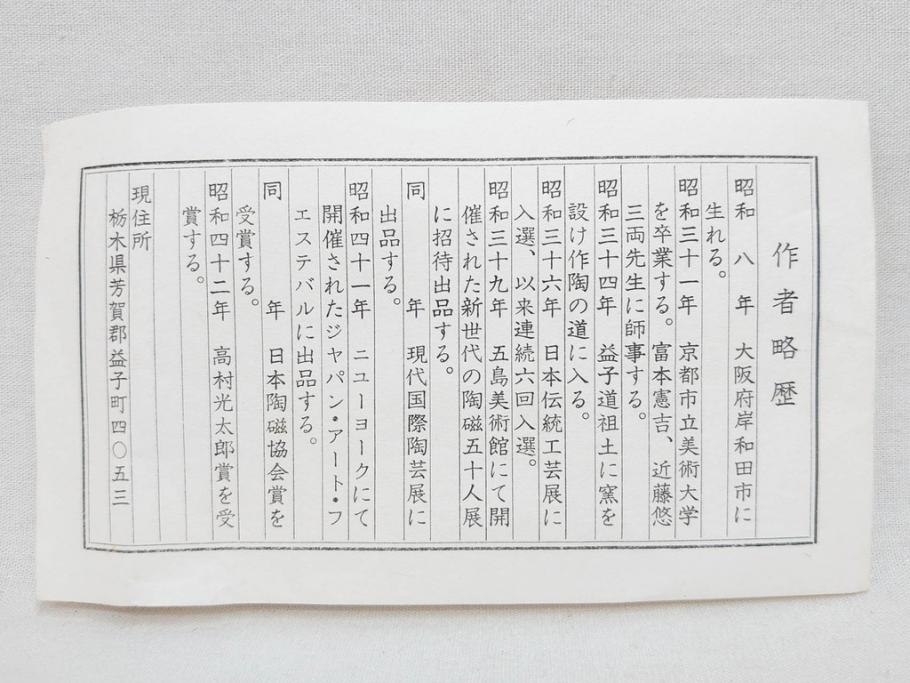 作者略歴
昭和 八 年 大阪府岸和田市に
生れる。
昭和三十一年 京都市立美術大学
を卒業する。富本憲吉、近藤悠
三両先生に師事する。
昭和三十四年 益子道祖土に窯を
設け作陶の道に入る。
昭和三十六年 日本伝統工芸展に
入選、以来連続六回入選。
昭和三十九年 五島美術館にて開
催された新世代の陶磁五十人展
に招待出品する。
同 年 現代国際陶芸展に
出品する。
昭和四十一年 ニューヨークにて
開催されたジャパン・アート・フ
エステバルに出品する。
同 年 日本陶磁協会賞を
受賞する。
昭和四十二年 高村光太郎賞を受
賞する。
現住所
栃木県芳賀郡益子町四〇五三